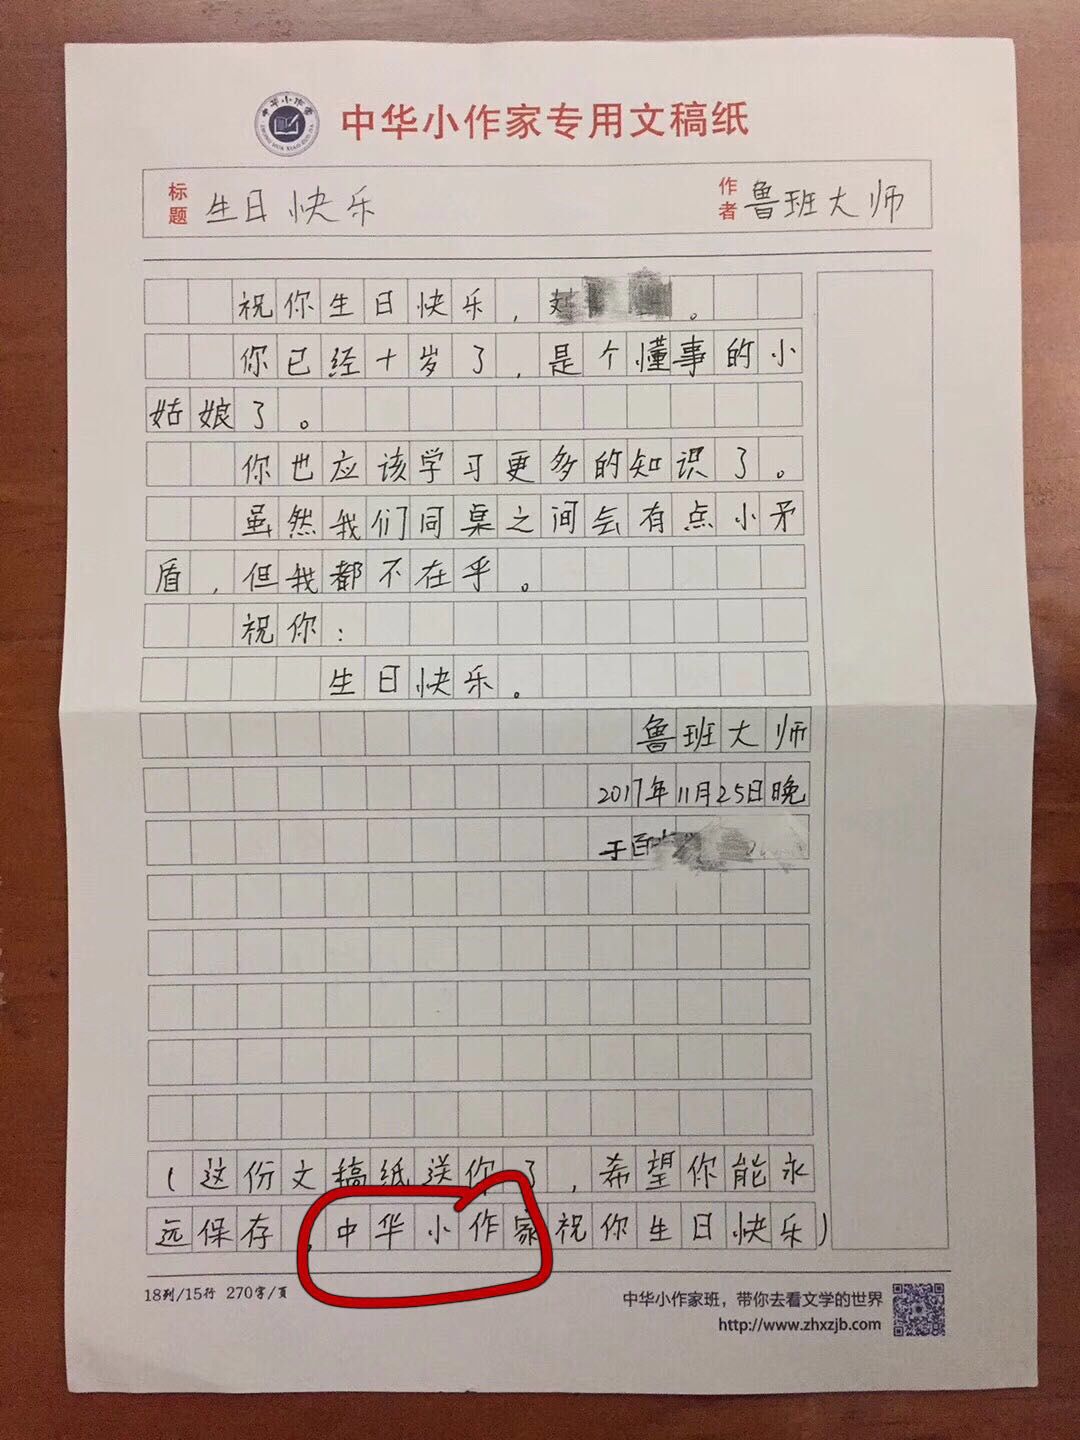 中华小作家
中华小作家专用文稿纸
标题 生日快乐 作者 鲁班大师
祝你生日快乐，。
你已经十岁了，是个懂事的小
姑娘了。
你也应该学习更多的知识了。
虽然我们同桌之间会有点小矛
盾，但我都不在乎。
祝你：
生日快乐。
鲁班大师
2017年11月25日晚
于百
（这份文稿纸送你了，希望你能永
远保存，中华小作家祝你生日快乐）
18列/15行 270字/页
中华小作家班，带你去看文学的世界
http://www.zhxzjb.com